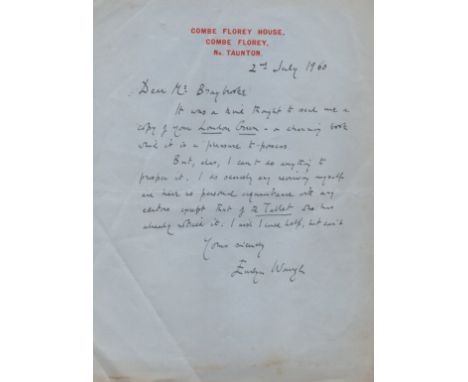 COMBE FLOREY HOUSE,
COMBE FLOREY,
Nr. TAUNTON.
2nd July 1960
Dear Mr Braybrooke
It was a kind thought to send me a
copy of your London Green - a charming book
which it is a pleasure to possess.
But, alas, I can't do anything to
propose it. I do scarcely any reviewing myself
and have no personal acquaintance with any
editors except that of the Tablet who has
already noticed it. I wish I could help, but can't
Yours sincerely
Evelyn Waugh